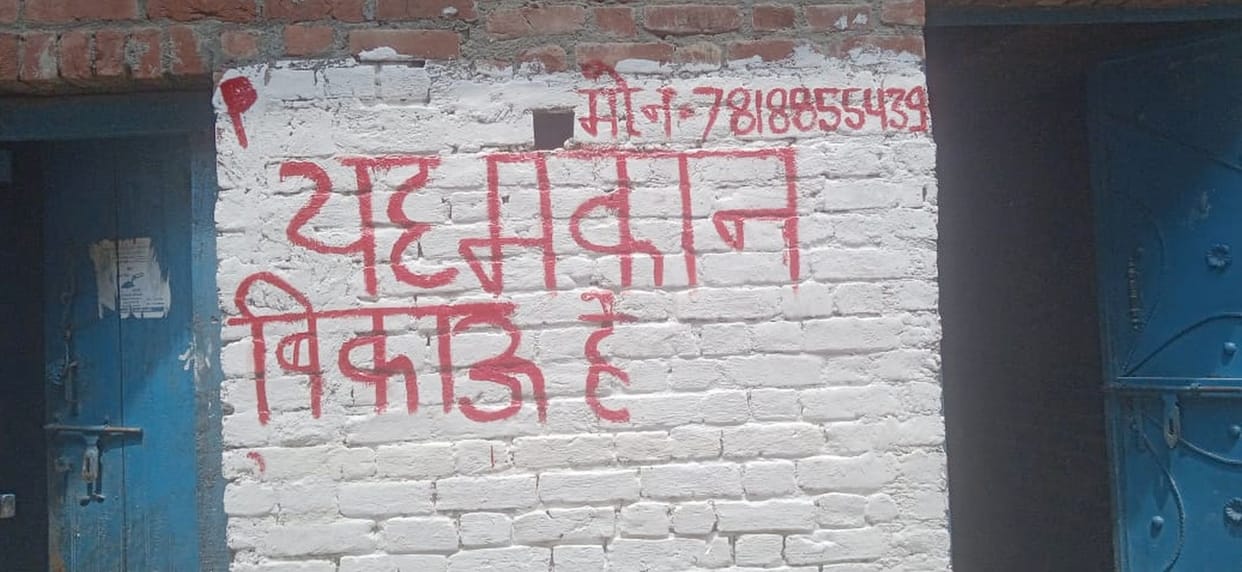 मो.न-7818855439
यह मकान
बिकाऊ है